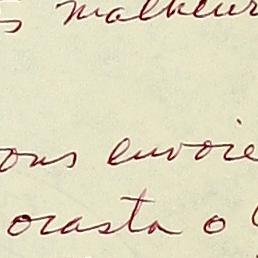 s malheur
ous envoie
orasta o